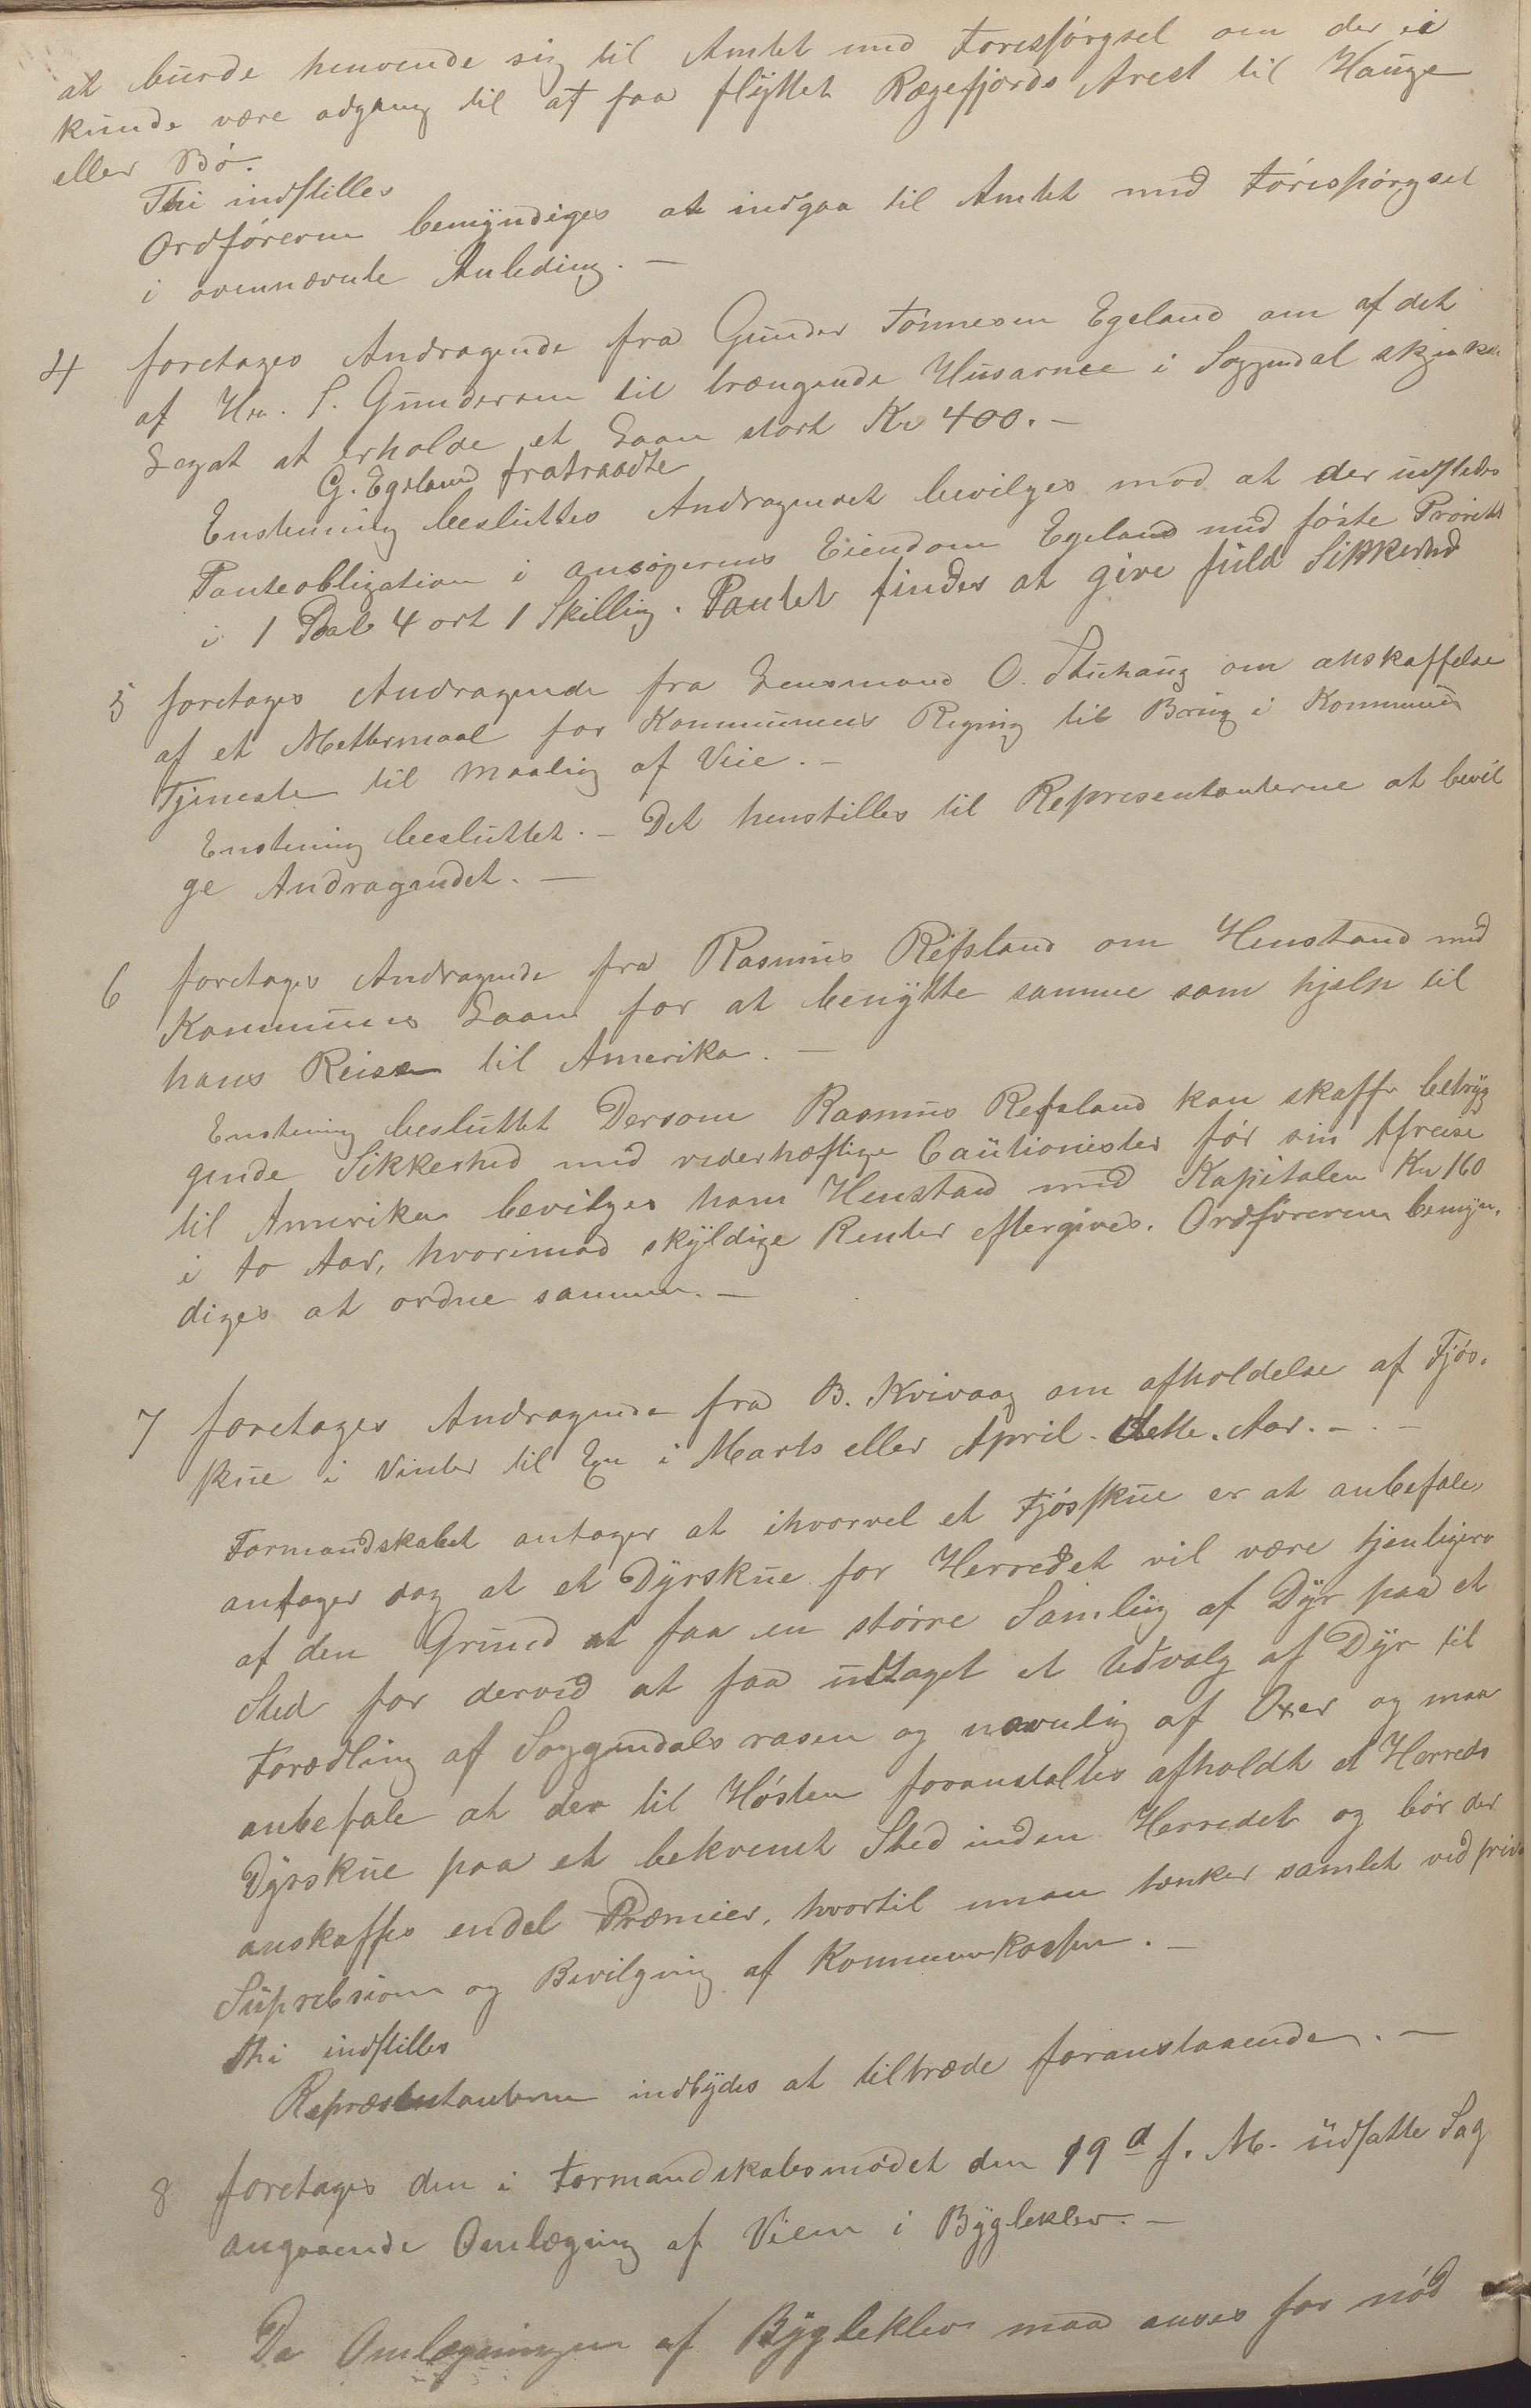 at burde henvende sig til Amtet med Forespørgsel om der ei
kunde være adgang til at faa flyttet Rægefjords Arest til Hauge
eller Bø.
Thi indstilles
Ordføreren bemyndiges at indgaa til Amtet med Forespørgsel
i ovennævnte Anledning. —
4 foretages Andragende fra Gunder Tønnesen Egeland om af det
af Hr. S. Gundersen til trængende Husarme i Soggendal skjænkede
Legat at erholde et Laan stort Kr 400. —
G. Egeland fratraadte
Enstemmig besluttes Andragendet bevilges mod at der udstedes
Panteobligation i ansøgerens Eiendom Egeland med føste Prioritet
i 1 Daler 4 ort 1 Skilling. Pantet findes at give fuld Sikkerhed
5 foretages Andragende fra Lensmand O. Stuhaug om anskaffelse
af et Mettermaal for Kommunens Regning til Brug i Kommunens
Tjeneste til Maaling af Veie. —
Enstemig besluttet. — Det henstilles til Representanterne at bevil
ge Andragendet. —
6 foretages Andragende fra Rasmus Refsland om Henstand med
Kommunens Laan for at benytte samme som hjelp til
hans Reise til Amerika. —
Enstemig besluttet Dersom Rasmus Refsland kan skaffe betryg
gende Sikkerhed med vederhæftige Cautionister før sin Afreise
til Amerika bevilges ham Henstand med Kapitalen Kr 160
i to Aar, hvorimod skyldige Renter eftergives. Ordføreren bemyn-
diges at ordne sammen. —
7 foretages Andragende fra B. Kvivaag om afholdelse af Fjøs-
skue i Vinter til Eg i Marts eller April dette Aar. — —
Formandskabet antager at ihvorvel et Fjøsskue er at anbefale,
antager dog at et Dyrskue for Herredet vil være tjenligere
af den Grund at faa en større Samling af Dyr paa et
Sted for derved at faa udtaget et Udvalg af Dyr til
Forædling af Soggendals rasen og navnlig af Oxer og maa
anbefale at der til Høsten foranstaltes afholdt et Herreds
Dyrskue paa et bekvemt Sted inden Herredet og bør der
anskaffes endel Præmier, hvortil man tænker samlet ved
og Bevilgning af Kommunekassen. —
Thi indstilles
Repræsentanterne indbydes at tiltræde foranstaaende. —
8 foretages den i Formandskabsmødet den 19d f. M. udsatte Sag
angaaende Omlægning af Veien i Bygleklev. —
Da Omlægningen af Bygleklev maa anses for nød